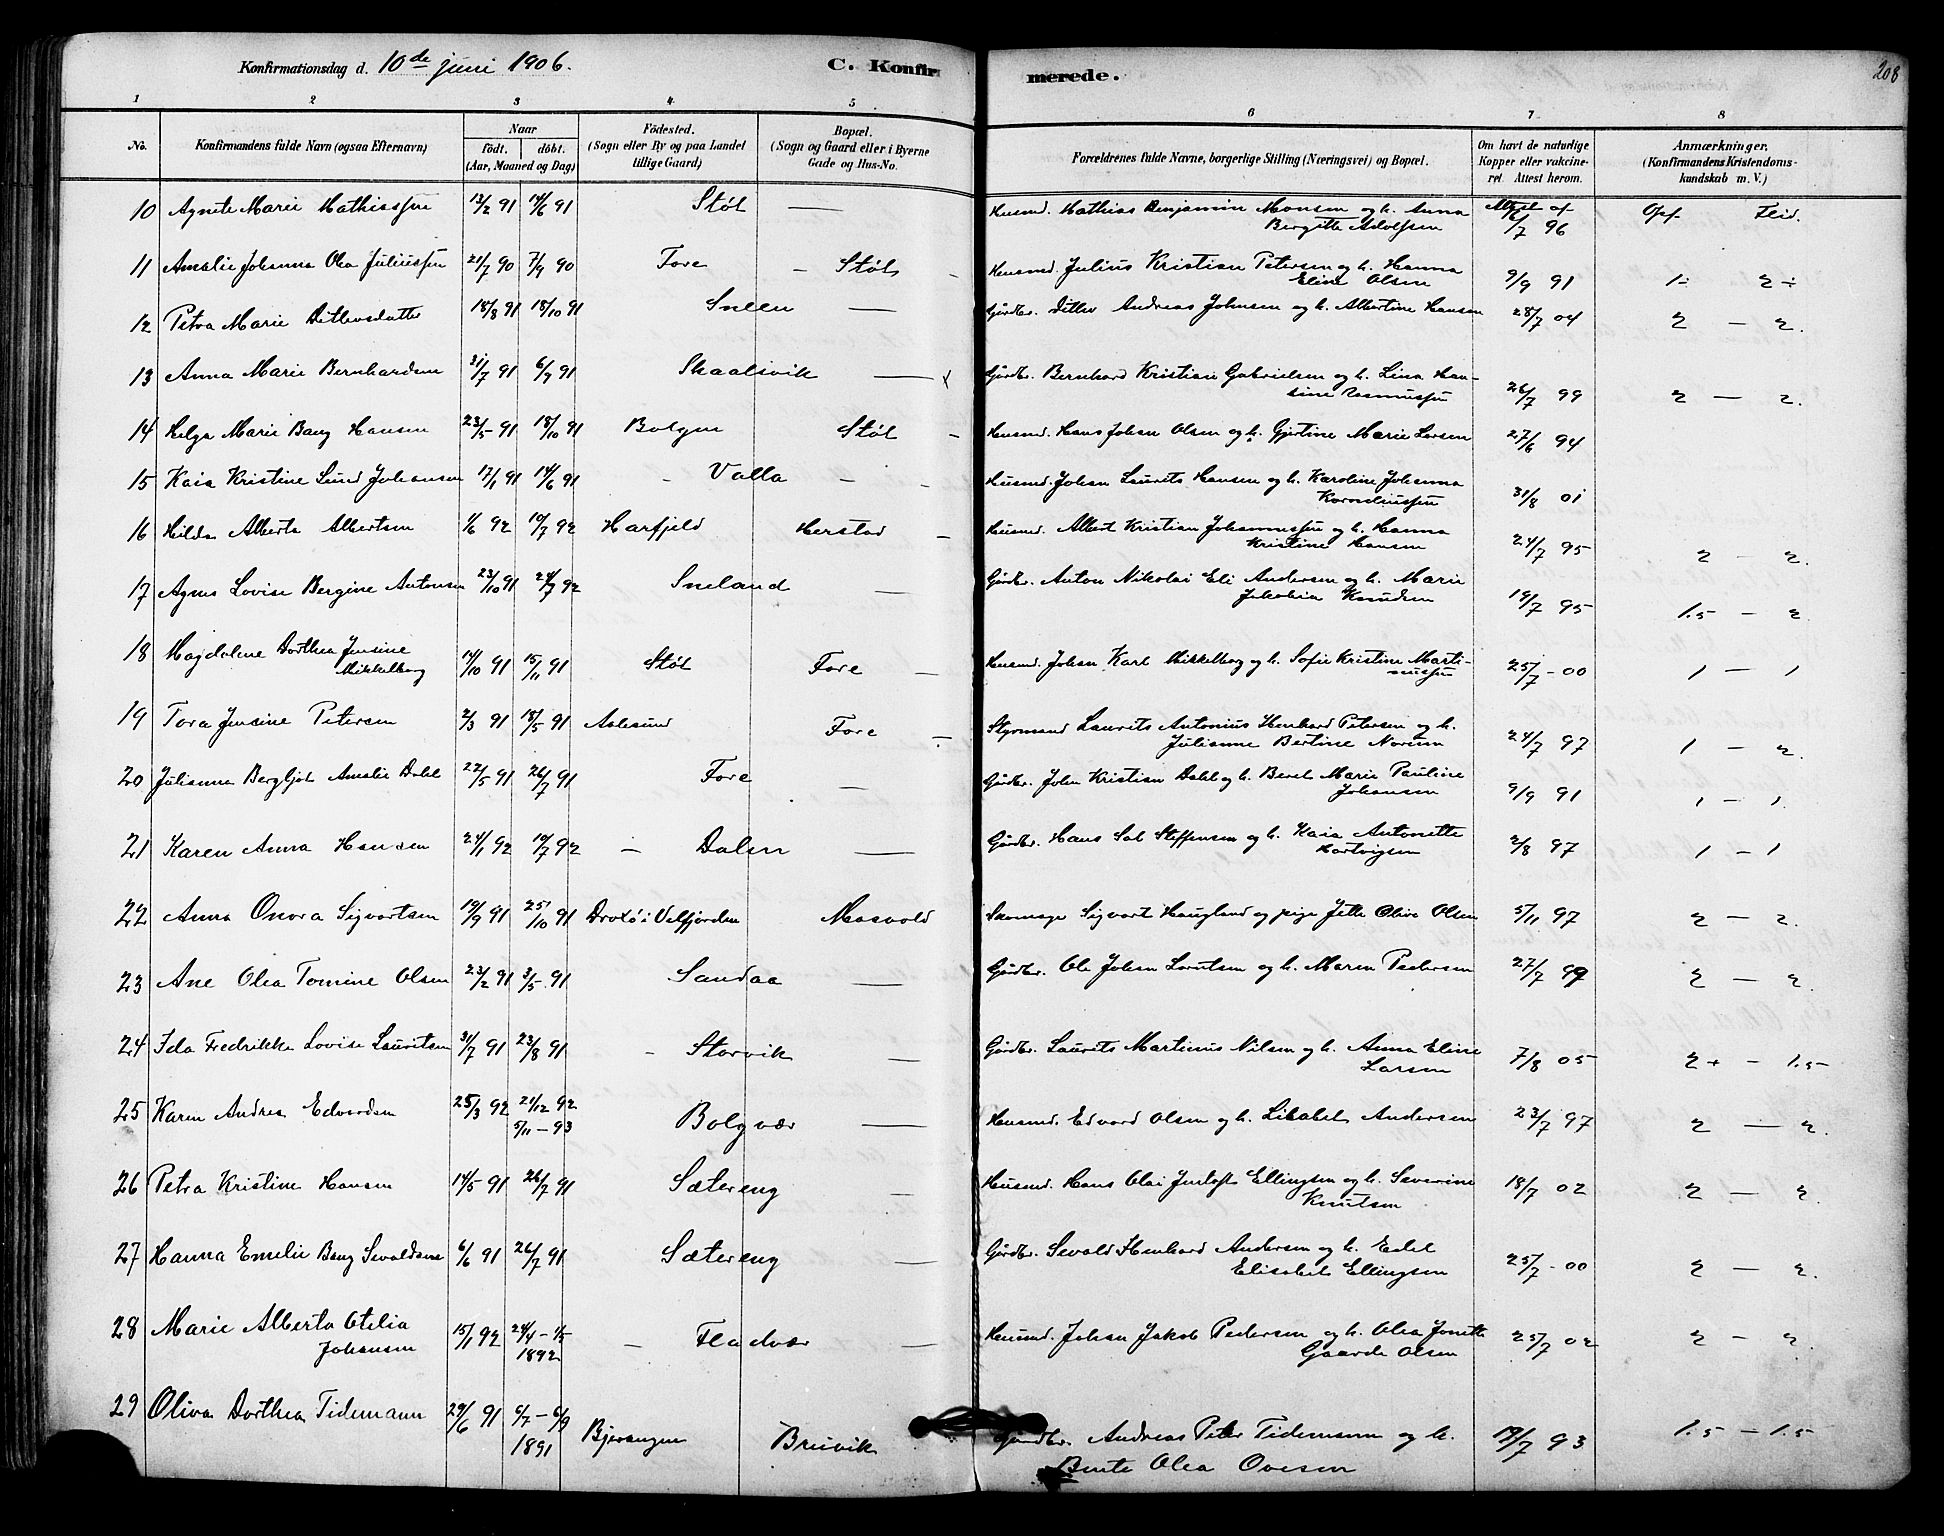 Konfirmationsdag d. 10de juni 1906.
C. Konfirmerede.
208
1 2 3 4 5 6 7 8
No.
Konfirmandens fulde Navn (ogsaa Efternavn)
Naar
födt. döbt.
(Aar, Maaned og Dag)
Födested.
(Sogn eller By og paa Landet
tillige Gaard)
Bopæl.
(Sogn og Gaard eller i Byerne
Gade og Hus-No.
Forældrenes fulde Navne, borgerlige Stilling (Næringsvei) og Bopæl.
Om havt de naturlige
Kopper eller vakcine-
ret. Attest herom.
Anmærkninger.
(Konfirmandens Kristendoms-
kundskab m. V.)
10 Agnete Marie Mathiassen 13/2 91 14/6 91 Støt — Husmd. Mathias Benjamin Monsen og h. Anna 96 Opf Flid.
Bergitte Adolfsen
11 Amalie Johanna Olea Juliussen 21/7 90 7/9 90 Fore - Støt - Husmd. Julius Kristian Petersen og h. Hanna 9/9 91 1- 2÷
Eline Olsen
12 Petra Marie Ditlevsdatter 18/8 91 18/10 91 Sneen — Gårdbr. Ditlev Andreas Johnsen og h. Albertine Hansen 28/7 04 2 — 2.
13 Anna Marie Bernhardsen 31/7 91 6/9 91 Skaalsvik — x Gårdbr. Bernhard Kristian Gabrielsen og h. Lina Han-
sine Rasmussen 26/7 99 2 — 2.
14 Helga Marie Bang Hansen 23/5 - 91 18/10 91 Bolgen Støt - Husmd. Hans Johan Olsen og h. Gjertine Marie Larsen 27/6 94
15 Kaia Kristine Lund Johansen 17/1 91 14/6 91 - Valla - - Husmd. Johan Laurits Hansen og h. Karoline Johanna
Korneliussen 31/8 01
16 Hilda Alberta Albertsen 1/6 92 10/7 92 Harfjeld Herstad - Husmd. Albert Kristian Johannessen og h. Hanna
Kristine Hansen 24/7 95 2 - 2.
17 Agnes Lovise Bergine Antonsen 23/10 91 24/7 92 Sneland — Gårdbr. Anton Nikolai Eli Andersen og h. Marie
Jakobia Knudsen 19/7 95 1.5 - 2
18 Magdalene Dorthea Jensine
Mikkelborg 14/10 91 15/11 91 Støt Fore - Husmd. Johan Karl Mikkelborg og h. Sofie Kristine Marti-
nussen 25/7 - 00 1 - 1
19 Tora Jensine Petersen 2/3 91 18/5 91 Aalesund Fore - Styrmand Laurits Antonius Henhard Petersen og h.
Julianne Bertine Norum 24/7 97 1 - 2.
20 Julianna Bergljot Amalie Dahl 22/5 91 26/7 91 Fore — Gårdbr. John Kristian Dahl og h. Beret Marie Pauline
Johansen 9/9 91 1 - 1.
21 Karen Anna Hansen 24/1 92 10/7 92 - Dalen — Gårdbr. Hans Sal Steffensen og h. Kaia Antonette
Hartvigsen 2/8 97 1 - 1
22 Anna Onora Sigvartsen 19/9 91 25/10 91 i Velfjorden Masvold Skomager Sigvart Haugland og pige Jette Olive Olsen 5/11 97 2 - 2.
23 Ane Olea Tomine Olsen 23/2 91 3/5 91 Sandaa — Gårdbr. Ole Johan Lorntsen og h. Maren Pedersen 27/7 99 2 — 2.
24 Ida Fredrikke Lovise Lauritsen 31/7 91 23/8 91 - Storvik — Gårdbr. Laurits Martinus Nilsen og h. Anna Eline
Larsen 7/8 05 2+ - 1.5
25 Karen Andrea Edvardsen 25/3 92 21/12 92
5/11 - 93 Bolgvær — Husmd. Edvard Olsen og h. Lisabet Andersen 23/7 97 2 — 2.
26 Petra Kristine Hansen 14/5 - 91 26/7 91 Sætereng — Husmd. Hans Olai Jentoft Ellingsen og h. Severine
Knutsen 18/7 02 2 — 2.
27 Hanna Emelie Bang Sevaldsen 6/6 91 26/7 91 Sætereng — Gårdbr. Sevald Henhard Andersen og h. Edel
Elisabet Ellingsen 25/7 - 00 2 — 2.
28 Marie Alberta Otelia
Johansen 15/1 92 24/4 - 1/5
1892 - Fladvær — Husmd. Johan Jakob Pedersen og h. Olea Jonette
Gaarda Olsen 25/7 02 2 - 2.
29 Oliva Dorthea Tidemann 29/6 91 6/7 - 6/9
1891 Bjerangen Breivik Gårdbr. Andreas Peter Tidemann og h. 19/7 93 1.5 - 1.5
Bente Olea Ovesen